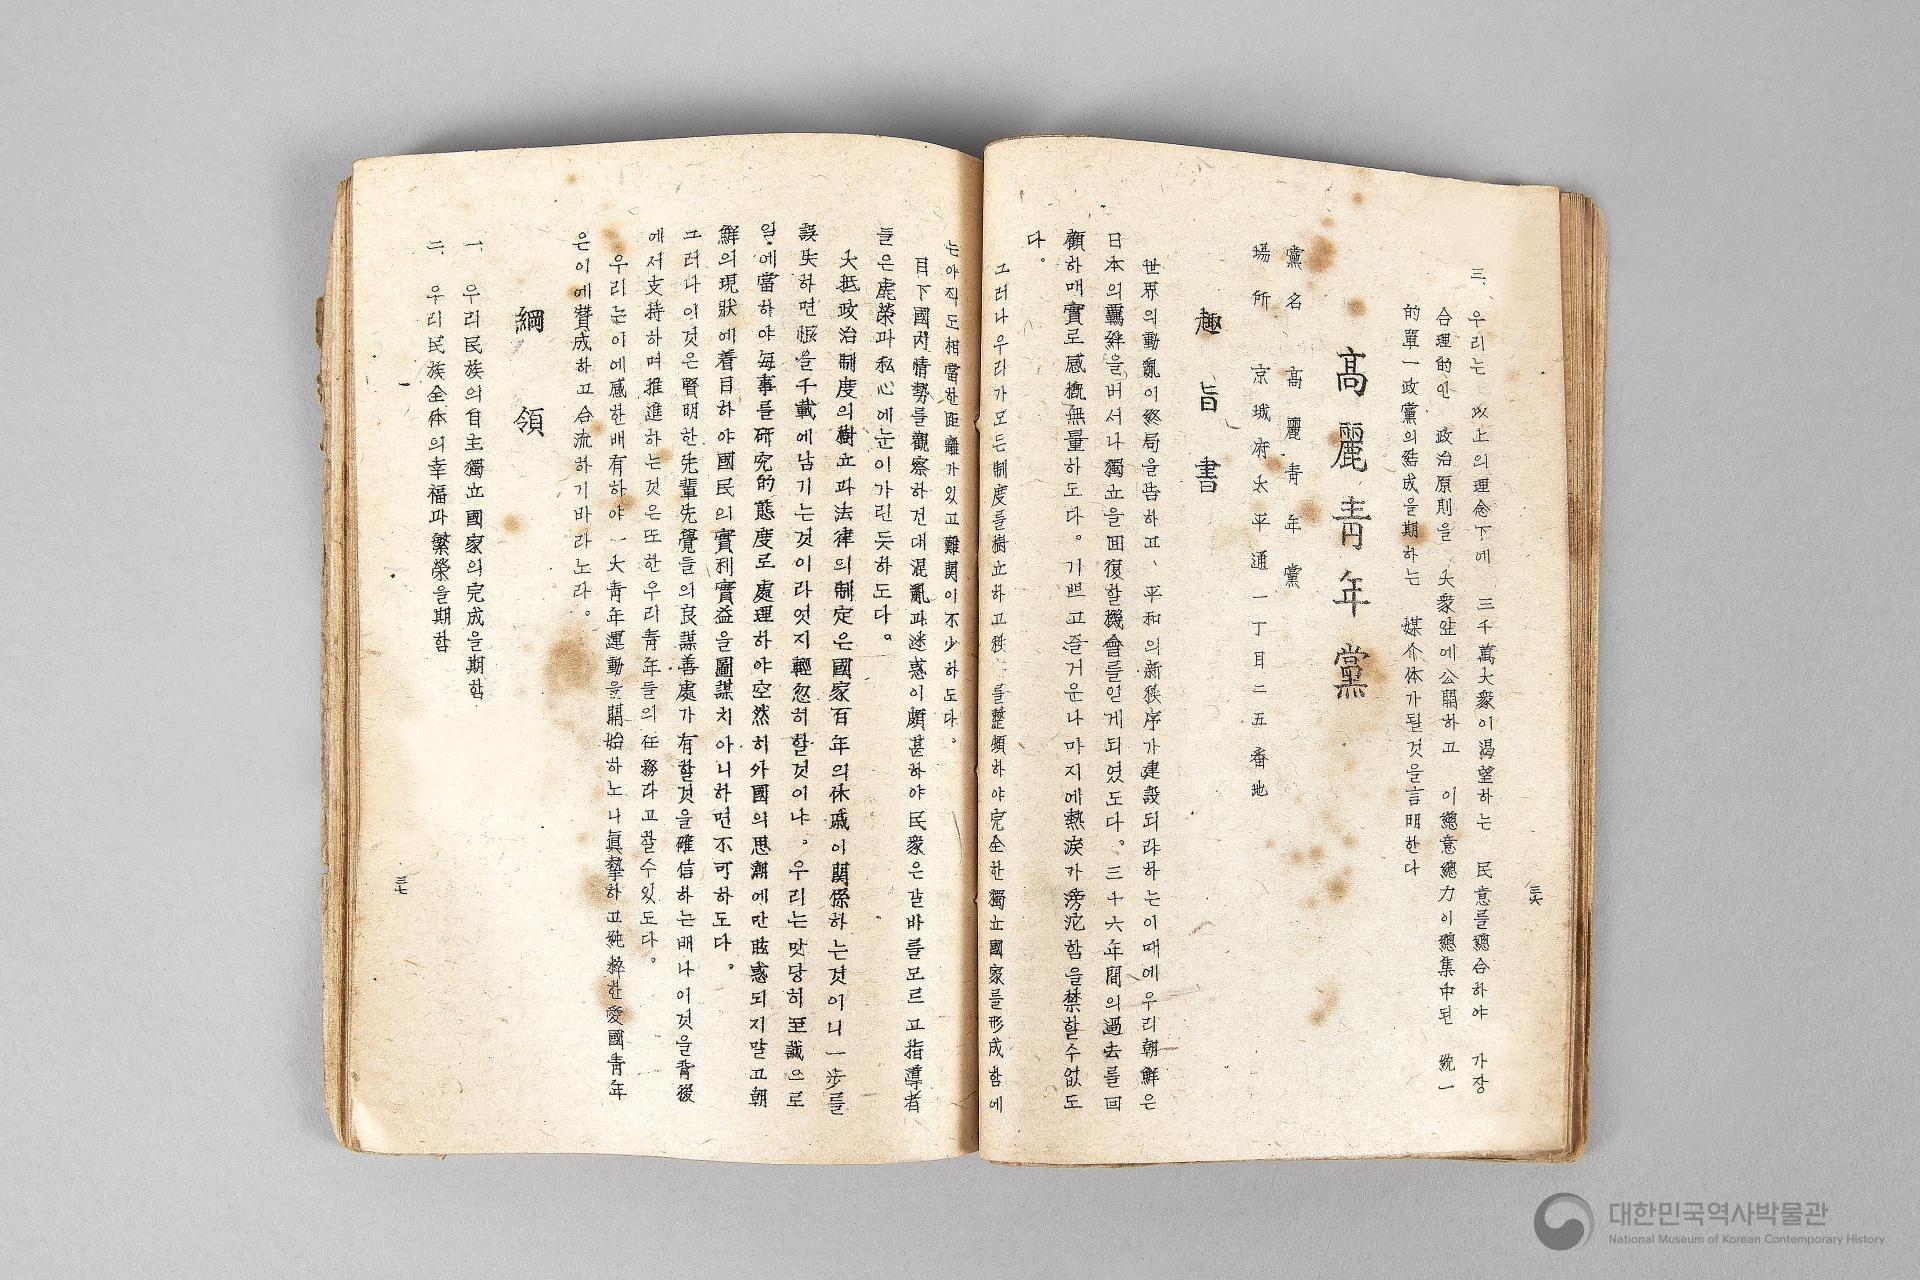 三、우리는 以上의理念下에 三千萬大衆이渴望하는 民意를總合하야 가장
合理的인 政治原則을 大衆앞에公開하고 이總意總力이總集中된 統一
的單一政黨의結成을期하는 媒介体가될것을言明한다
高麗青年黨
黨名 高麗青年黨
場所 京城府太平通一丁目二五番地
趣旨書
世界의動亂이終局을告하고、平和의新秩序가建設되랴하는이때에우리朝鮮은
日本의羈絆을버서나獨立을回復할機會를얻게되였도다。三十六年間의過去를回
顧하매實로感槪無量하도다。기쁘고즐거운나마지에熱淚가滂沱함을禁할수없도
다。
그러나우리가모든制度를樹立하고秩 를整頓하야完全한獨立國家를形成함에
三六
는아직도相當한距離가있고難関이不少하도다。
目下國內情勢를觀察하건대混亂과迷惑이頗甚하야民衆은갈바를모르고指導者
들은虛榮과私心에눈이가린듯하도다。
大抵政治制度의樹立과法律의制定은國家百年의休戚이関係하는것이니一步를
誤失하면恨을千載에남기는것이라엇지輕忽히할것이냐。우리는맛당히至誠으로
일에當하야每事를研究的態度로處理하야空然히外國의思潮에만眩惑되지말고朝
鮮의現狀에着目하야國民의實利實益을圖謀치아니하면不可하도다。
그러나이것은賢明한先輩先覺들의良謀善處가有할것을確信하는배나이것을背後
에서支持하며推進하는것은또한우리青年들의任務라고할수있도다。
우리는이에感한배有하야一大青年運動을開始하노니眞摯하고純粹한愛國青年
은이에賛成하고合流하기바라노라。
綱領
一、우리民族의自主獨立國家의完成을期함
二、우리民族全体의幸福과繁榮을期함
三七
대한민국역사박물관
National Museum of Korean Contemporary History